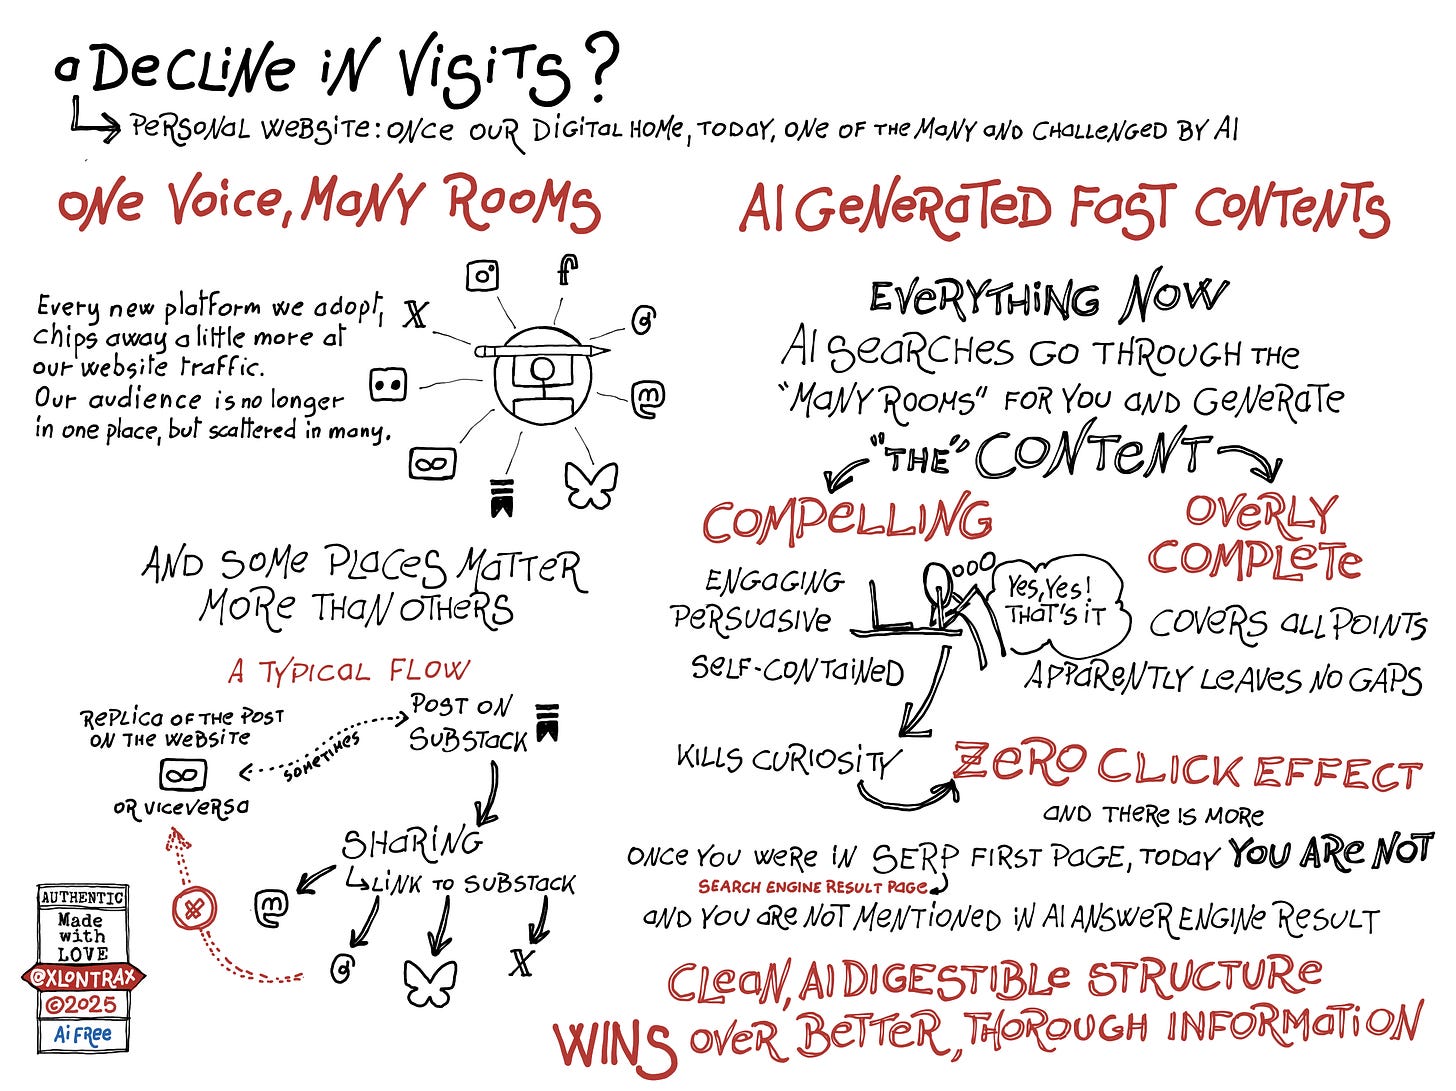 a DeCLiNe iN ViSiTS?
PeRSONaL WeBSiTe: ONCe OUR DiGiTaL HOMe, TODaY, ONe OF THe MaNY aND CHaLLeNGeD BY AI
ONe VOice, MaNY ROOMS
Every new platform we adopt,
chips away a little more at
our website traffic.
Our audience is no longer
in one place, but scattered in many.
AND SOMe PLaCeS MaTTeR
MORe THaN OTHeRS
A TYPICAL FLOW
RePLiCa OF THe POST
ON THe WeBSiTe
OR ViCeVeRSa
SOMeTiMeS
POST ON
SUBSTaCK
SHaRiNG
LiNK TO SUBSTaCK
AUTHENTIC
Made
with
LOVE
@XLONTRAX
©2025
Ai FRee
AI GeNeRaTeD FaST CONTeNTS
EVeRYTHiNG NOW
AI SeaRCHeS GO THROUGH THe
"MaNY ROOMS" FOR YOU aND GeNeRaTe
"THe" CONTeNT
COMPeLLiNG
ENGaGiNG
PeRSUaSiVe
SeLF-CONTaiNeD
Yes, Yes!
THAT'S iT
OVeRLY
COMPLeTe
COVeRS aLL POiNTS
APPaReNTLY LeaVeS NO GaPS
KiLLS CURiOSiTY
ZeRO CLiCK EFFECT
aND THeRe iS MORe
ONCe YOU WeRe iN SERP FiRST PaGe, TODaY YOU ARe NOT
SeaRCH ENGiNe ReSULT PaGe
aND YOU aRe NOT MeNTiONeD iN AI ANSWeR ENGiNe ReSULT
CLeaN, AI DiGeSTiBLe STRUCTURe
WiNS OVeR BeTTeR, THOROUGH iNFORMaTiON